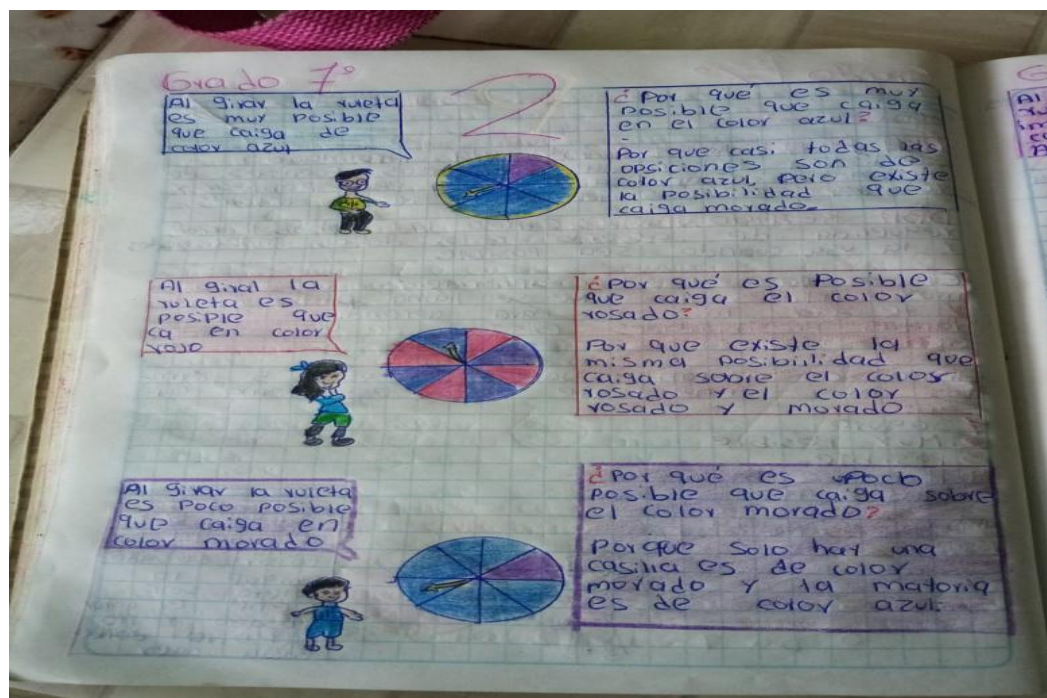 Grado 7°
2
Al girar la ruleta
es muy posible
que caiga de
color azul
¿Por qué es muy
posible que caiga
en el color azul?
Por que casi todas las
opsiciones son de
color azul, pero existe
la posibilidad que
caiga morado.
Al giral la
ruleta es
posiple que
ca en color
rojo
¿Por qué es Posible
que caiga el color
rosado?
Por que existe la
misma posibiilidad que
caiga sobre el color
rosado y el color
rosado y morado
Al girar la ruleta
es poco posible
que caiga en
color morado
¿Por qué es poco
posible que caiga sobre
el color morado?
Porque solo hay una
casilla es de color
morado y la matoria
es de color azul.
G
Al